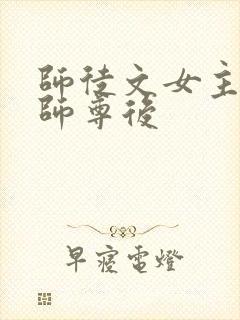 師徒文女主
師尊後
早寢電燈